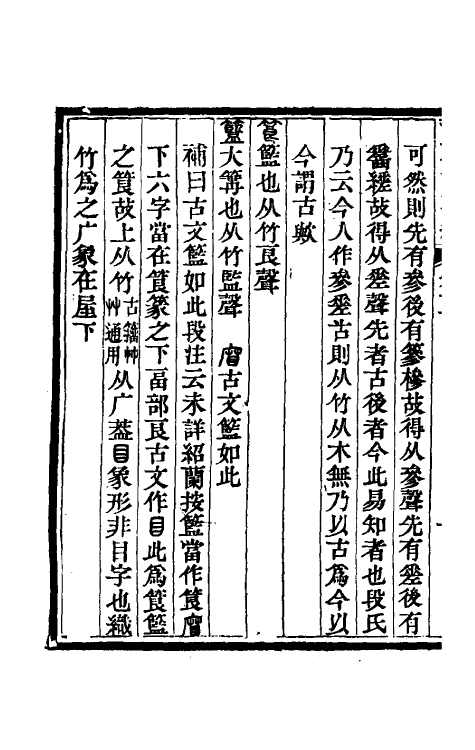 可然則先有參後有篸槮故得从參聲先有坙後有
䌇經故得从坙聲先者古後者今此易知者也段氏
乃云今人作參坙古則从竹从木無乃以古爲今以
今謂古歟
筤籃也从竹良聲
籃大篝也从竹監聲　𥴧古文籃如此
補曰古文籃如此段注云未詳紹蘭按籃當作筤
下六字當在筤篆之下畗部良古文作目此爲筤籃
之筤故上从竹古籀艸艸通用从广葢目象形非日字也織
竹爲之广象在屋下